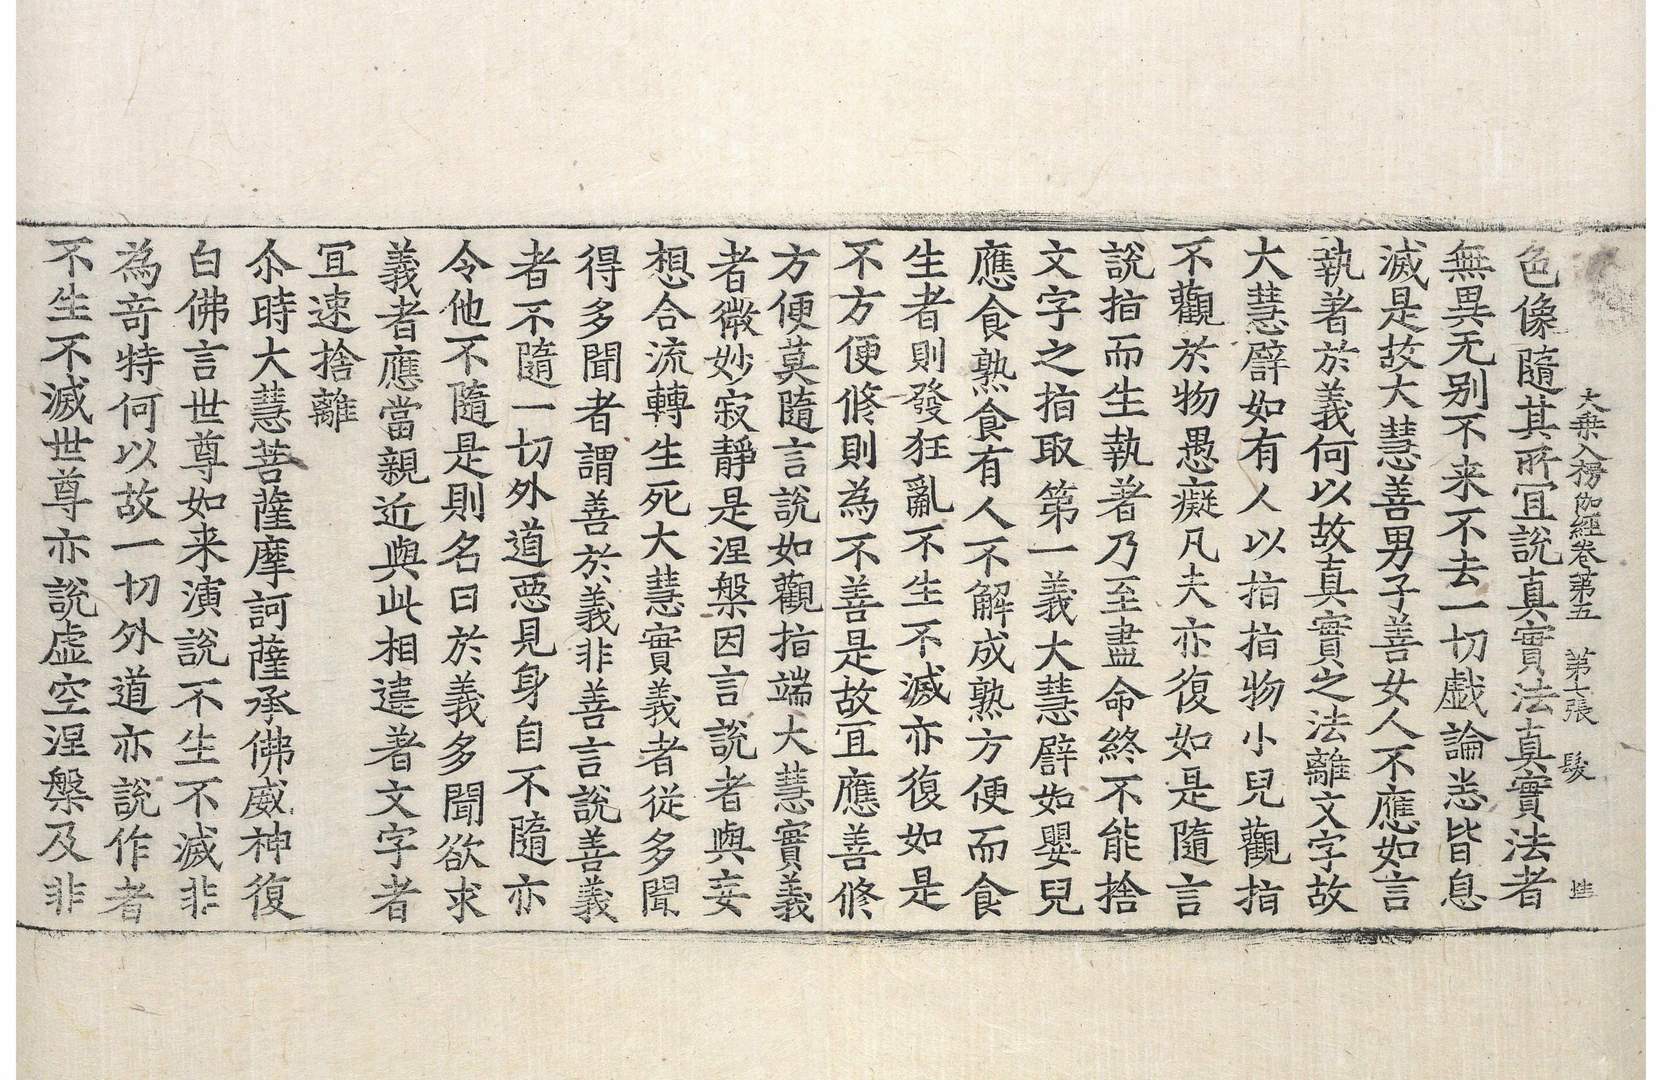 大乗入楞伽經卷第五　第七張　髮
色像隨其所冝說真實法真實法者
無異无别不来不去一切戯論悉皆息
滅是故大慧善男子善女人不應如言
執著於義何以故真實之法離文字故
大慧譬如有人以指指物小兒觀指
不觀於物愚癡凡夫亦復如是隨言
說指而生執著乃至盡命終不能捨
文字之指取第一義大慧譬如嬰兒
應食熟食有人不解成熟方便而食
生者則發狂亂不生不滅亦復如是
不方便修則為不善是故冝應善修
方便莫隨言說如觀指端大慧實義
者微妙寂靜是涅槃因言說者與妄
想合流轉生死大慧實義者從多聞
得多聞者謂善於義非善言說善義
者不隨一切外道惡見身自不隨亦
令他不隨是則名曰於義多聞欲求
義者應當親近與此相違著文字者
冝速捨離
尒時大慧菩薩摩訶薩承佛威神復
白佛言世尊如来演說不生不滅非
為奇特何以故一切外道亦說作者
不生不滅世尊亦說虚空涅槃及非